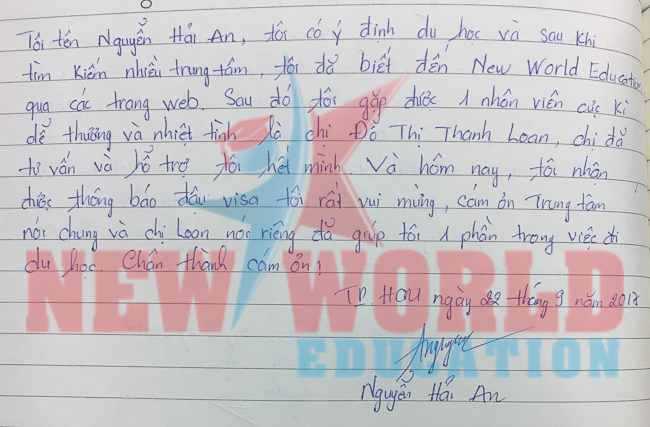 Tôi tên Nguyễn Hải An, tôi có ý định du học và sau khi
tìm kiếm nhiều trung tâm, tôi đã biết đến New World Education
qua các trang web. Sau đó tôi gặp được 1 nhân viên cực kì
dễ thương và nhiệt tình là chị Đỗ Thị Thanh Loan, chị đã
tư vấn và hỗ trợ tôi hết mình. Và hôm nay, tôi nhận
được thông báo đậu visa tôi rất vui mừng, cám ơn Trung tâm
nói chung và chị Loan nói riêng đã giúp tôi 1 phần trong việc đi
du học. Chân thành cám ơn!
TP. HCM ngày 22 tháng 9 năm 2017
NEW WORLD
EDUCATION
Nguyễn Hải An